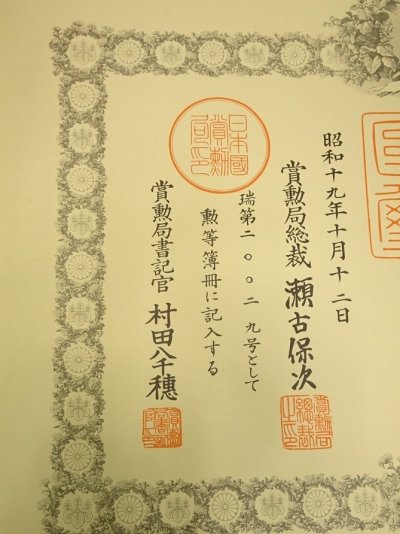 昭和十九年十月十二日
賞勲局総裁 瀬古保次
瑞第二〇〇二九号として
勲等簿冊に記入する
賞勲局書記官 村田八千穂
日本國
賞勳
局印
賞勲局
総裁
之印